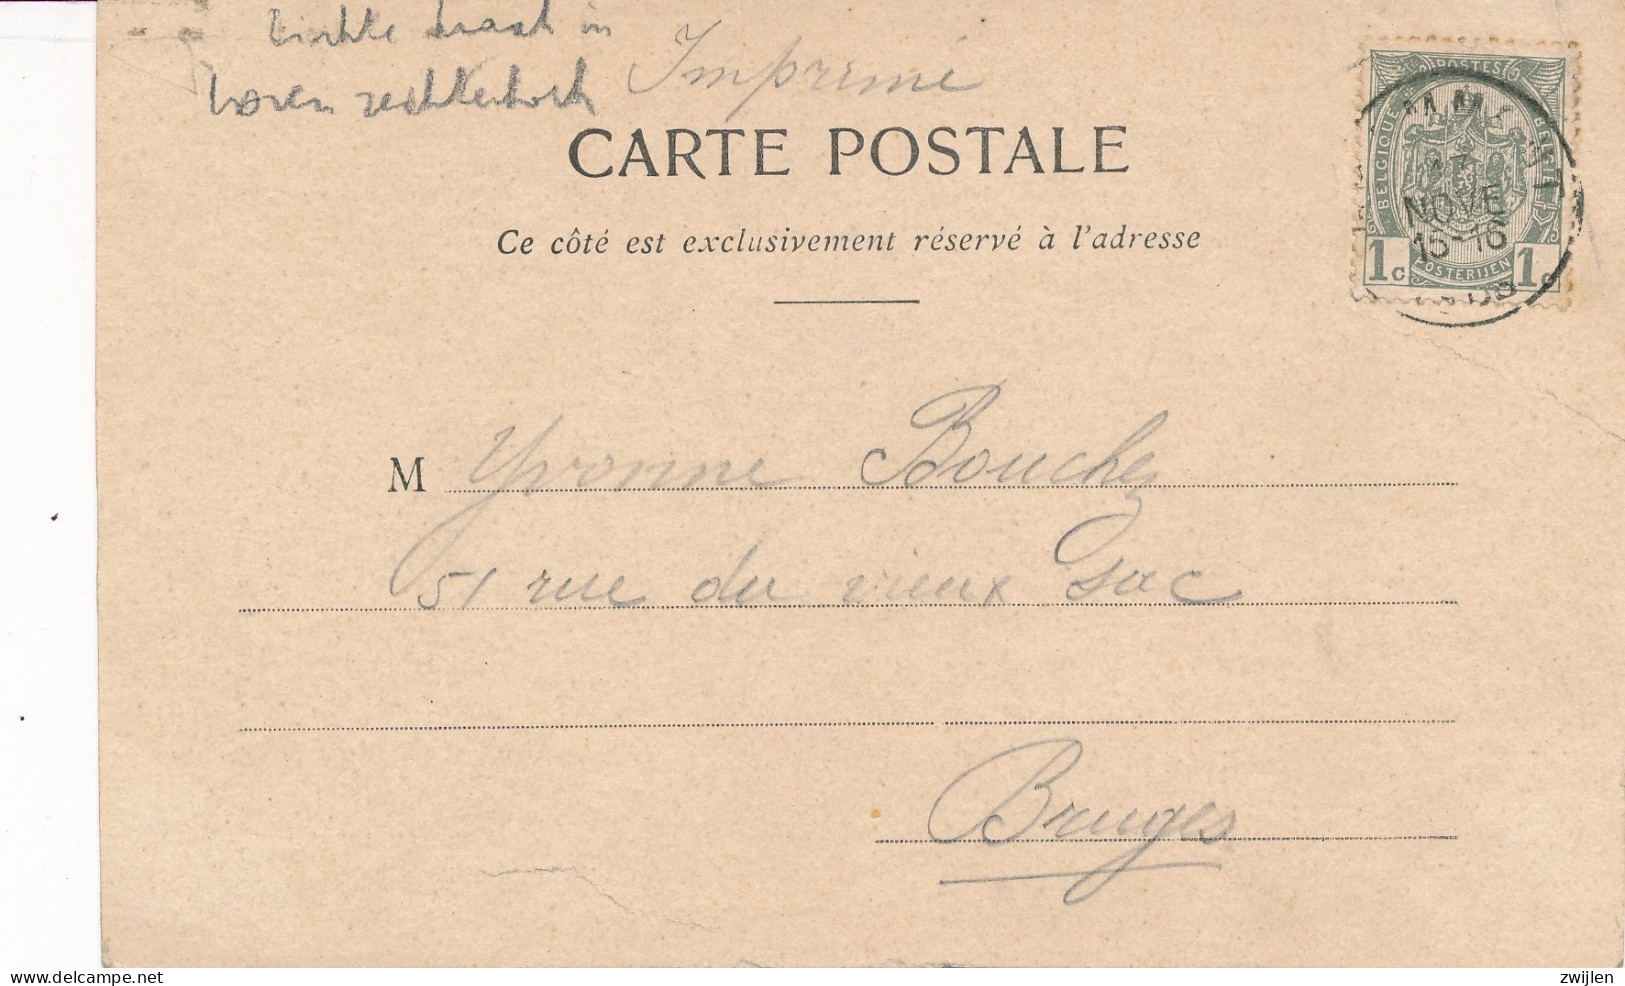 lichte kraak in
boven rechterhoek
Imprimé
CARTE POSTALE
Ce côté est exclusivement réservé à l'adresse
POSTES
BELGIQUE
BELGIË
NOVE
15-16
1c
POSTERIJEN
1c
M Yvonne Bouchez
51 rue du vieux sac
Bruges
delcampe.net
zwijlen